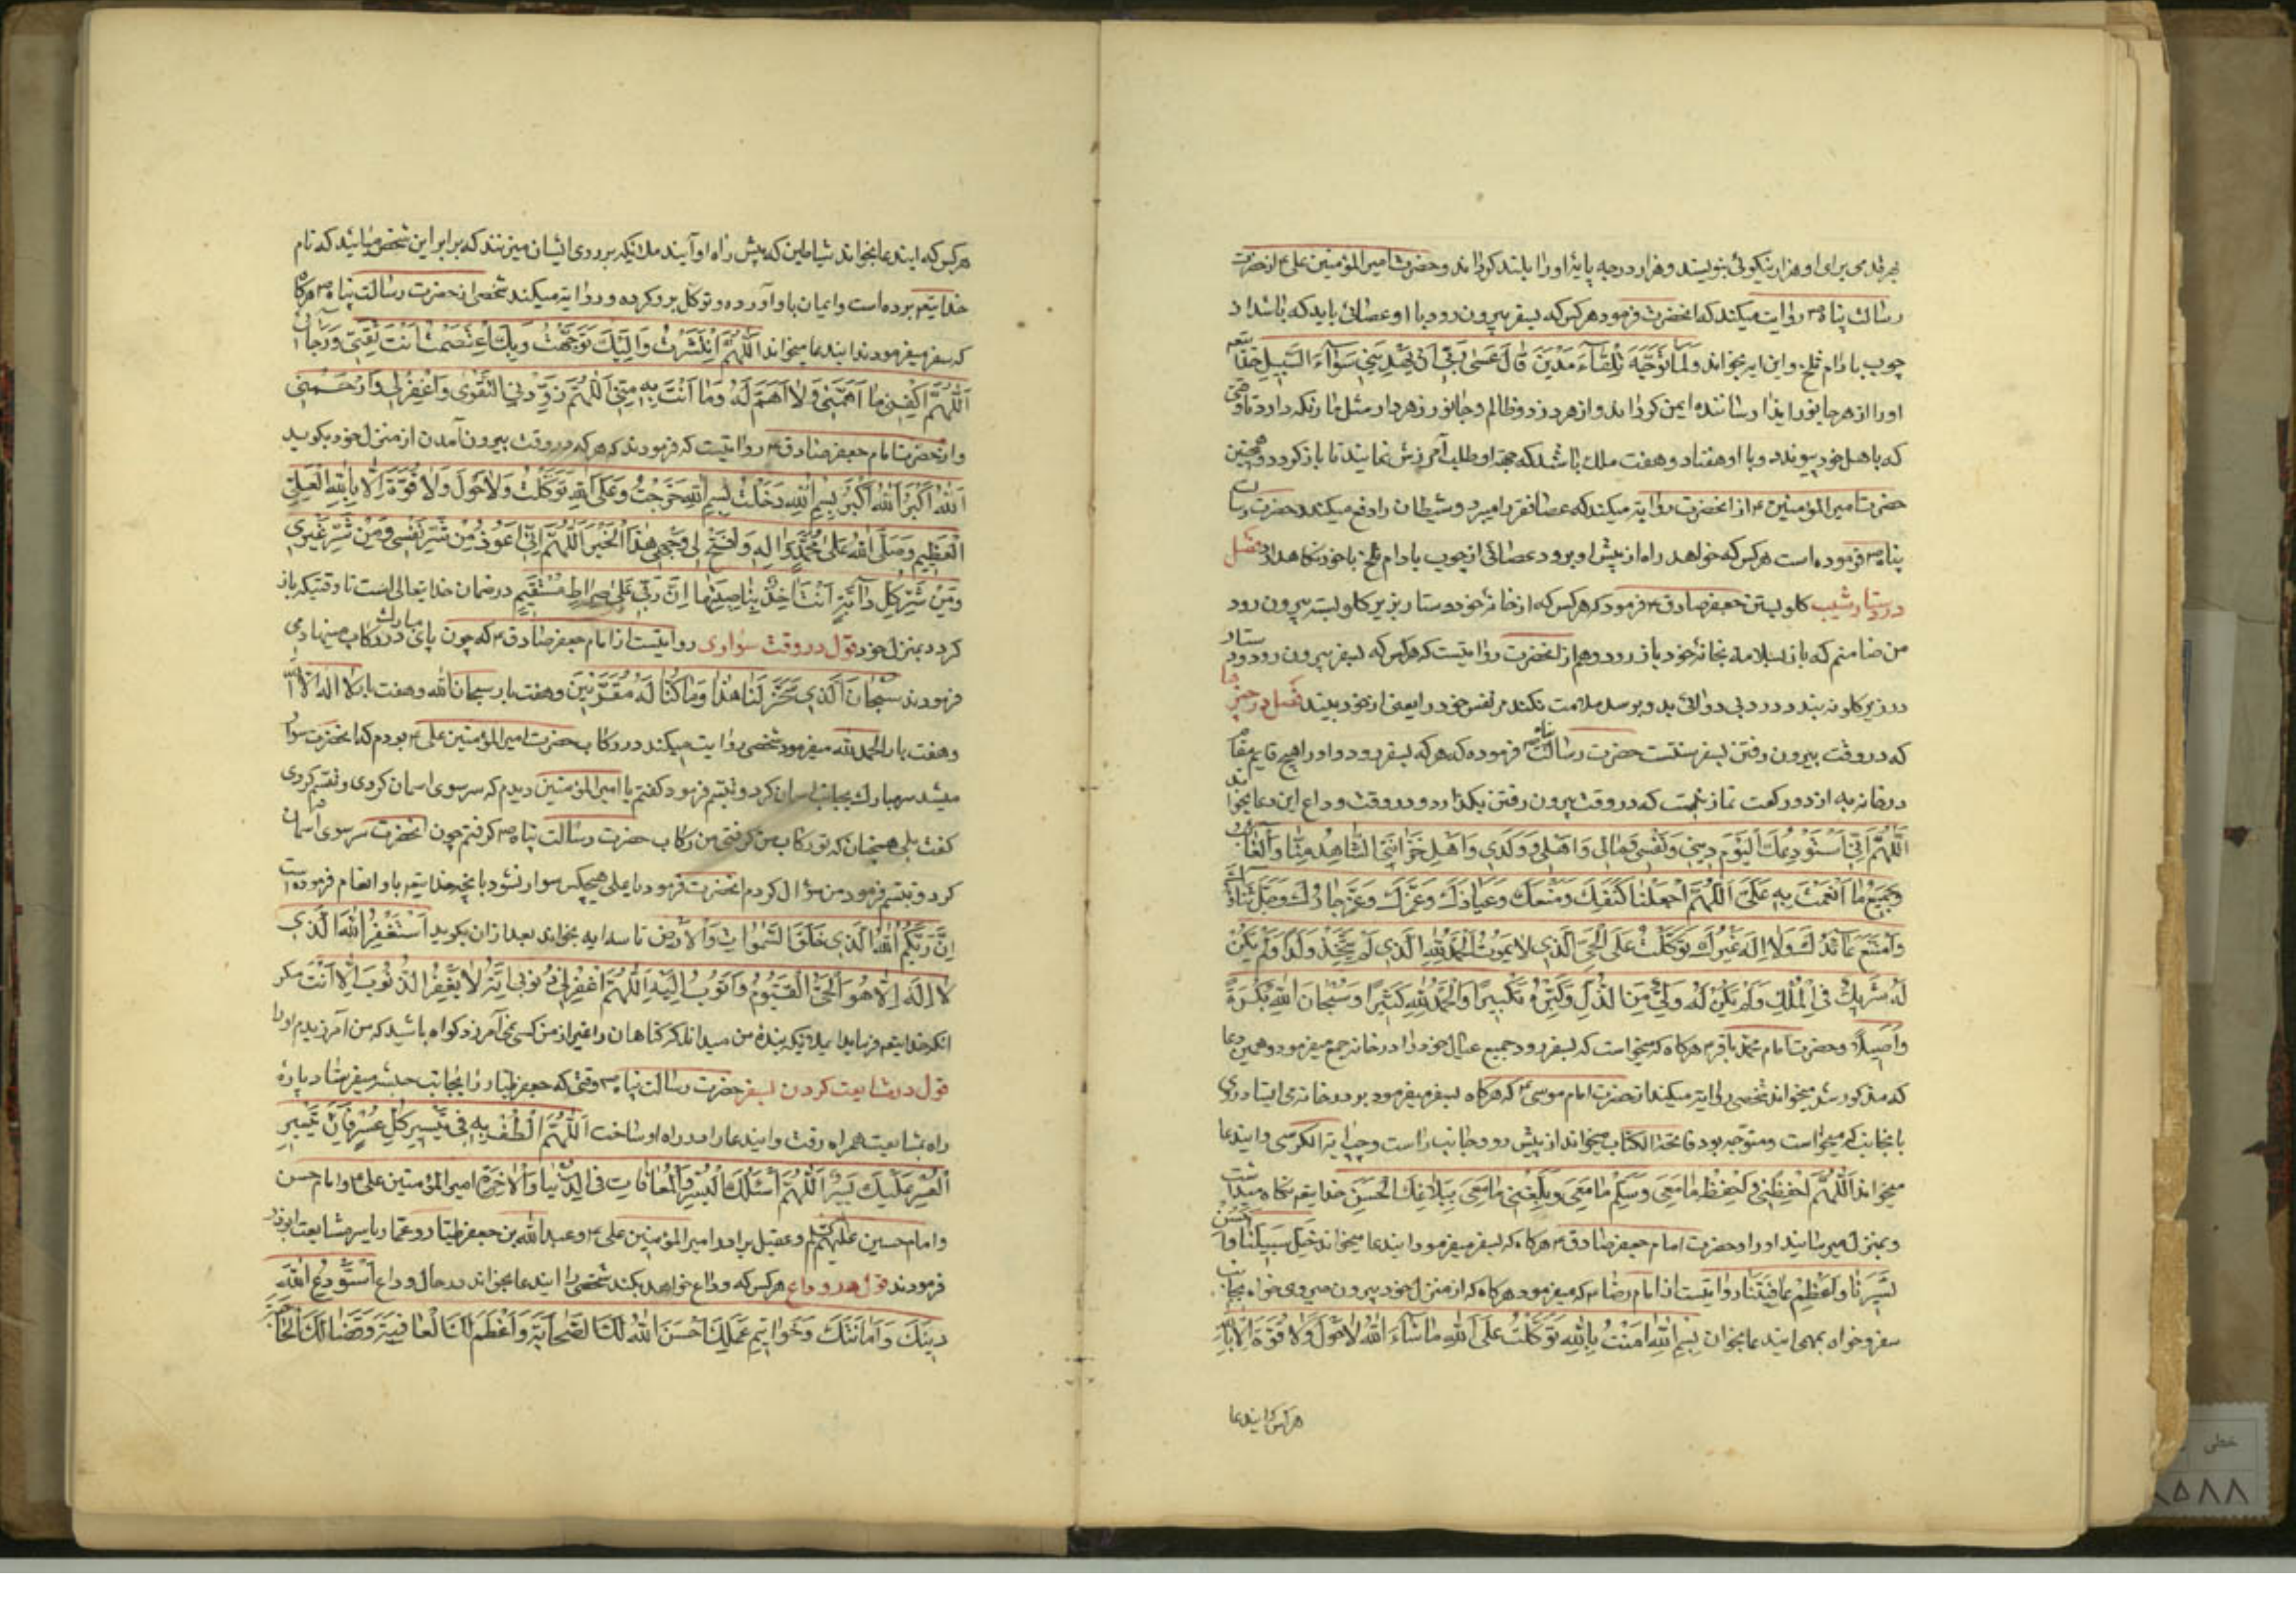 بهر قدمی برای او هزار نیکوئی بنویسند و هزار درجه پایهٔ او را بلند کردانند و حضرت امیر المؤمنین علی ع از حضرت
رسالت پناه ص روایت میکند که انحضرت فرمود هر کس که بسفر بیرون رود با او عصائی باید که باشد از
چوب بادام تلخ و این ایه بخواند وَلَمّا تَوَجَّهَ تِلْقاءَ مَدْیَنَ قالَ عَسی رَبّی اَنْ یَهْدِیَنی سَواءَ السَّبیلِ خدایتعم
او را از هر جانور ایذا رساننده ایمن کرداند و از هر دزد و ظالم و جانور زهردار مثل مار نکه دارد تا وقتی
که باهل خود پیوندد و با او هفتاد و هفت ملک باشد که جهة او طلب آمرزش نمایند تا باز کردد و همچنین
حضرت امیر المؤمنین ع از انحضرت روایة میکند که عصا فقر را میبرد و شیطان را دفع میکند و حضرت رسالت
پناه ص فرموده است هر کس که خواهد راه از پیش او برود عصائی از چوب بادام تلخ با خود نکاهدارد فصل
در دستار شیب کلو بستن جعفر صادق ع فرمود که هر کس که از خانهٔ خود دستار بزیر کلو بسته بیرون رود
من ضامنم که باز بسلامة بخانهٔ خود باز رود و هم از انحضرت روایتست که هر کس که بسفر بیرون رود و دستار
در زیر کلو نه بندد و درد بی دوائی بدو برسد ملامت نکند مر نفس خود را یعنی از خود بیند فصل در چیزها
که در وقت بیرون رفتن بسفر سنتست حضرت رسالت پناه ص فرموده که هر که بسفر رود و او را هیچ قایم مقام
در خانه به از دو رکعت نماز نیست که در وقت بیرون رفتن بکذارد و در وقت وداع این دعا بخواند
اَللّهُمَّ اِنّی اَسْتَوْدِعُکَ الْیَوْمَ دینی وَ نَفْسی وَ مالی وَ اَهْلی وَ وَلَدی وَ اَهْلِ خَزانَتی الشّاهِدُ مِنّا وَ الْغائِبُ
وَ جَمیعَ ما اَنْعَمْتَ بِهِ عَلَیَّ اَللّهُمَّ اجْعَلْنا کَنَفِکَ وَ مَنْعِکَ وَ عَیاذِکَ وَ عِزِّکَ وَ عَزَّ جارُکَ وَ جَلَّ ثَناؤُکَ
وَ امْتَنَعَ عائِذُکَ وَلا اِلهَ غَیْرُکَ تَوَکَّلْتُ عَلَی الْحَیِّ الَّذی لا یَمُوتُ الْحَمْدُ لِلّهِ الَّذی لَمْ یَتَّخِذْ وَلَداً وَ لَمْ یَکُنْ
لَهُ شَریکٌ فی الْمُلْکِ وَ لَمْ یَکُنْ لَهُ وَلِیٌّ مِنَ الذُّلِّ وَ کَبِّرْهُ تَکْبیراً وَ الْحَمْدُ لِلّهِ کَثیراً وَ سُبْحانَ اللّهِ بُکْرَةً
وَ اَصیلاً و حضرت امام محمد باقر ع هر کاه که میخواست که بسفر رود جمیع عیال خود را در خانه جمع میفرمود و همین دعا
که مذکور شد میخواند شخصی روایة میکند از حضرت امام موسی ع که هر کاه بسفر میفرمود بر در خانه می ایستاد روی
بانجانب که میخواست و متوجّه بود فاتحة الکتاب میخواند از پیش رو و جانب راست و چپ و ایة الکرسی و ایندعا
میخواند اَللّهُمَّ احْفَظْنی وَ احْفَظْ ما مَعی وَ سَلِّمْ ما مَعی وَ بَلِّغْنی ما مَعی بِبَلاغِکَ الْحَسَنِ خدایتعم نکاه میداشت
و بمنزل میرسانید او را و حضرت امام جعفر صادق ع هر کاه که بسفر میفرمود ایندعا میخواند خَلِّ سَبیلَنا وَ اَحْسِنْ
تَسْیِیرَنا وَ اَعْظِمْ عافِیَتَنا روایتست از امام رضا ع که میفرمود هر کاه که از منزل خود بیرون میروی خواه بجانب
سفر و خواه بمهمی ایندعا بخوان بِسْمِ اللّهِ امَنْتُ بِاللّهِ تَوَکَّلْتُ عَلَی اللّهِ ما شاءَ اللّهُ لا حَوْلَ وَ لا قُوَّةَ اِلّا بِاللّهِ
هر کس که ایندعا
هر کس که ایندعا بخواند شیاطین که پیش راه او آیند ملائیکه بر روی ایشان میزنند که برابر این شخص میائید که نام
خدایتعم برده است و ایمان باو آورده و توکل برو کرده و روایة میکند شخصی از حضرت رسالت پناه ص هر کاه
که سفر میفرمودند ایندعا میخواند اَللّهُمَّ انْتَشَرْتُ وَ اِلَیْکَ تَوَجَّهْتُ وَ بِکَ اعْتَصَمْتُ اَنْتَ ثِقَتی وَ رَجائی
اَللّهُمَّ اکْفِنی ما اَهَمَّنی وَلا اَهَمَّ لَهُ وَ ما اَنْتَ بِهِ مِنّی اَللّهُمَّ زَوِّدْنی التَّقْوی وَ اغْفِرْ لی وَ ارْحَمْنی
و از حضرت امام جعفر صادق ع روایتست که فرمودند که هر که در وقت بیرون آمدن از منزل خود بکوید
اَللّهُ اَکْبَرُ اَللّهُ اَکْبَرُ بِسْمِ اللّهِ دَخَلْتُ بِسْمِ اللّهِ خَرَجْتُ وَ عَلَی اللّهِ تَوَکَّلْتُ وَلا حَوْلَ وَلا قُوَّةَ اِلّا بِاللّهِ الْعَلِیِّ
الْعَظیمِ وَ صَلَّی اللّهُ عَلی مُحَمَّدٍ وَ الِهِ وَ افْتَحْ لی وَجْهی هذَا الْخَیْرَ اَللّهُمَّ اِنّی اَعُوذُ مِنْ شَرِّ نَفْسی وَ مِنْ شَرِّ غَیْری
وَ مِنْ شَرِّ کُلِّ دابَّةٍ اَنْتَ اخِذٌ بِناصِیَتِها اِنَّ رَبّی عَلی صِراطٍ مُسْتَقیمٍ در ضمان خدایتعالی است تا وقتیکه باز
کردد بمنزل خود قول در وقت سواری روایتست از امام جعفر صادق ع که چون پای مبارک در رکاب مینهاد می
فرمودند سُبْحانَ الَّذی سَخَّرَ لَنا هذا وَ ما کُنّا لَهُ مُقْرِنینَ و هفت بار سبحان الله و هفت بار لا اله الا الله
و هفت بار الحمد لله میفرمود شخصی روایت میکند در رکاب حضرت امیر المؤمنین علی ع بودم که انحضرت سوار
میشد سر مبارک بجانب اسمان کرد و تبسّم فرمود کفتم یا امیر المؤمنین دیدم که سر سوی اسمان کردی و تبسّم کردی
کفت بلی همچنان که تو رکاب من کرفتی من رکاب حضرت رسالت پناه ص کرفتم چون انحضرت سر سوی آسمان
کرد و تبسّم فرمود من سؤال کردم انحضرت فرمود یا علی هیچکس سوار نشود بانچه خدایتعم باو انعام فرموده است
اِنَّ رَبَّکُمُ اللّهُ الَّذی خَلَقَ السَّمواتِ وَ الْاَرْضَ تا سه ایه بخواند بعد از ان بکوید اَسْتَغْفِرُ اللّهَ الَّذی
لا اِلهَ اِلّا هُوَ الْحَیُّ الْقَیُّومُ وَ اَتُوبُ اِلَیْهِ اَللّهُمَّ اغْفِرْ لی ذُنُوبی اِنَّهُ لا یَغْفِرُ الذُّنُوبَ اِلّا اَنْتَ مکر
انکه خدایتعم فرماید ای ملائیکه بندهٔ من میداند که کناهان را غیر از من کسی نمی آمرزد کواه باشید که من آمرزیدم او را
قول در مشایعت کردن بسفر حضرت رسالت پناه ص وقتی که جعفر طیار را بجانب حبشه میفرستاد پارهٔ
راه بمشایعت همراه رفت و ایندعا را در راه او ساخت اَللّهُمَّ الْطُفْ بِهِ فی تَیْسیرِ کُلِّ عَسیرٍ فَاِنَّ تَیْسیرَ
الْعَسیرِ عَلَیْکَ یَسیرٌ اَللّهُمَّ اَسْئَلُکَ الْیُسْرَ وَ الْمُعافاتِ فی الدُّنْیا وَ الْاخِرَةِ امیر المؤمنین علی ع و امام حسن
و امام حسین علیهم السلم و عقیل برادر امیر المؤمنین علی ع و عبد الله بن جعفر طیار و عمّار یاسر مشایعت ابوذر
فرمودند قول در وداع هر کس که وداع خواهد بکند شخصی را ایندعا بخواند در حال وداع اَسْتَوْدِعُ اللّهَ
دینَکَ وَ اَمانَتَکَ وَ خَواتیمَ عَمَلِکَ اَحْسَنَ اللّهُ لَکَ الصَّحابَةَ وَ اَعْظَمَ لَکَ الْعافِیَةَ وَ قَضا لَکَ الْحاجَةَ
خطی
۸۵۸۸